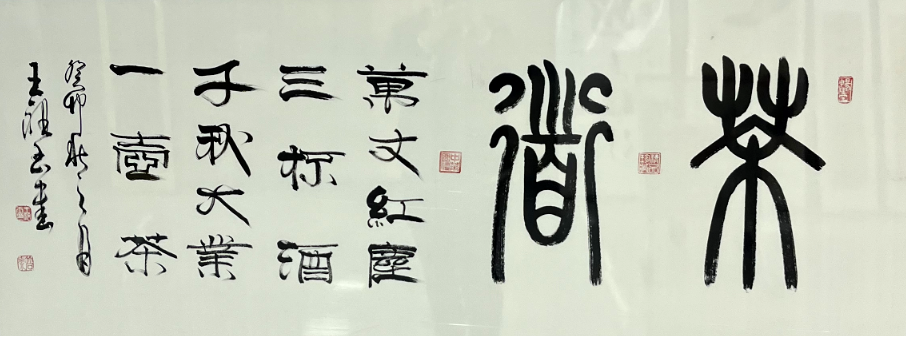 茶道
萬丈紅塵
三杯酒
千秋大業
一壺茶
癸卯之月
王書